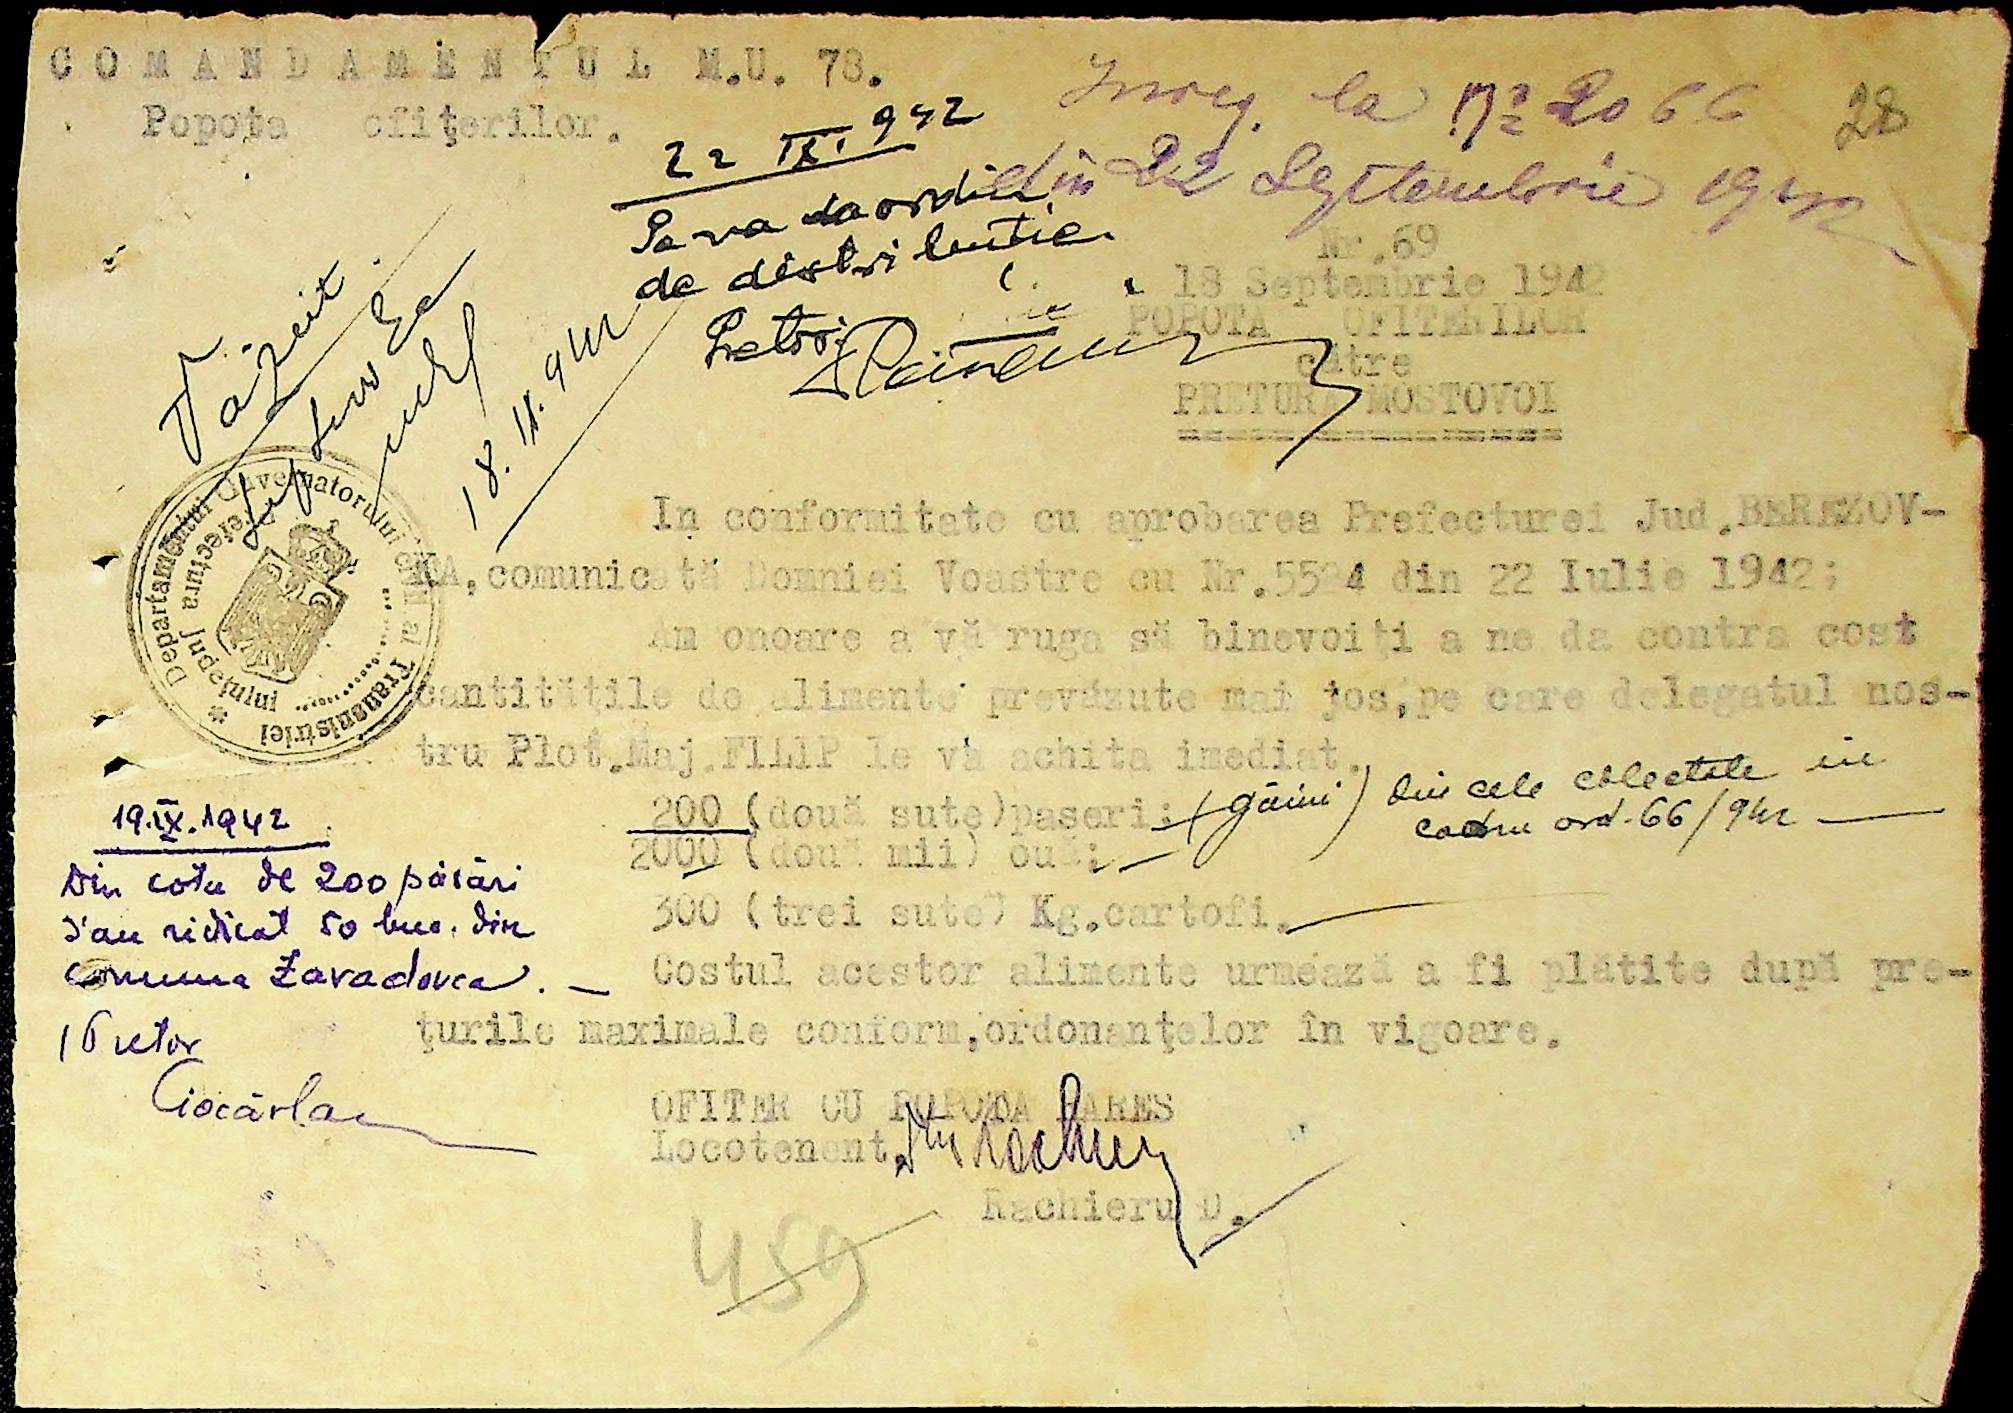 COMANDAMENTUL M.U. 78.
Popota ofiţerilor.
Inreg. la Nr 2066
din 22 Septembrie 1942
28
22 IX. 942
Se va da ordin
de distribuție
Pretor
Văzut
18. IX. 942
Nr.69
18 Septembrie 1942
POPOTA OFITERILOR
către
PRETURA MOSTOVOI
Departamentul Guvernatorului Civil al Transnistriei
Prefectura Judeţului
In conformitate cu aprobarea Prefecturei Jud.BEREZOV-
KA,comunicată Domniei Voastre cu Nr.5524 din 22 Iulie 1942;
Am onoare a vă ruga să binevoiţi a ne da contra cost
cantităţile de alimente prevăzute mai jos,pe care delegatul nos-
tru Plot.Maj.FILIP le va achita imediat.
200 (două sute)paseri; (găini) din cele colectate in
cadru ord. 66/942
2000 (două mii) ouă;
300 (trei sute) Kg.cartofi.
Costul acestor alimente urmează a fi plătite după pre-
ţurile maximale conform,ordonanţelor în vigoare.
19.IX.1942
Din cota de 200 păsări
s'au ridicat 50 buc. din
comuna Zavadovca. —
Pretor
Ciocârlan
OFITER CU POPOTA MARES
Locotenent,
Rachieru D.
459